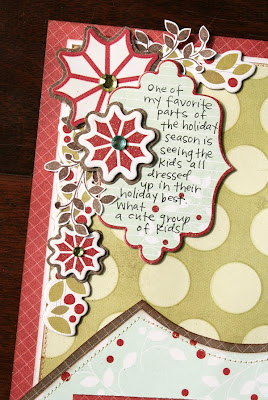 One of
my favorite
parts of
the holiday
season is
seeing the
kids all
dressed
up in their
holiday best.
What
a cute group
of kids!